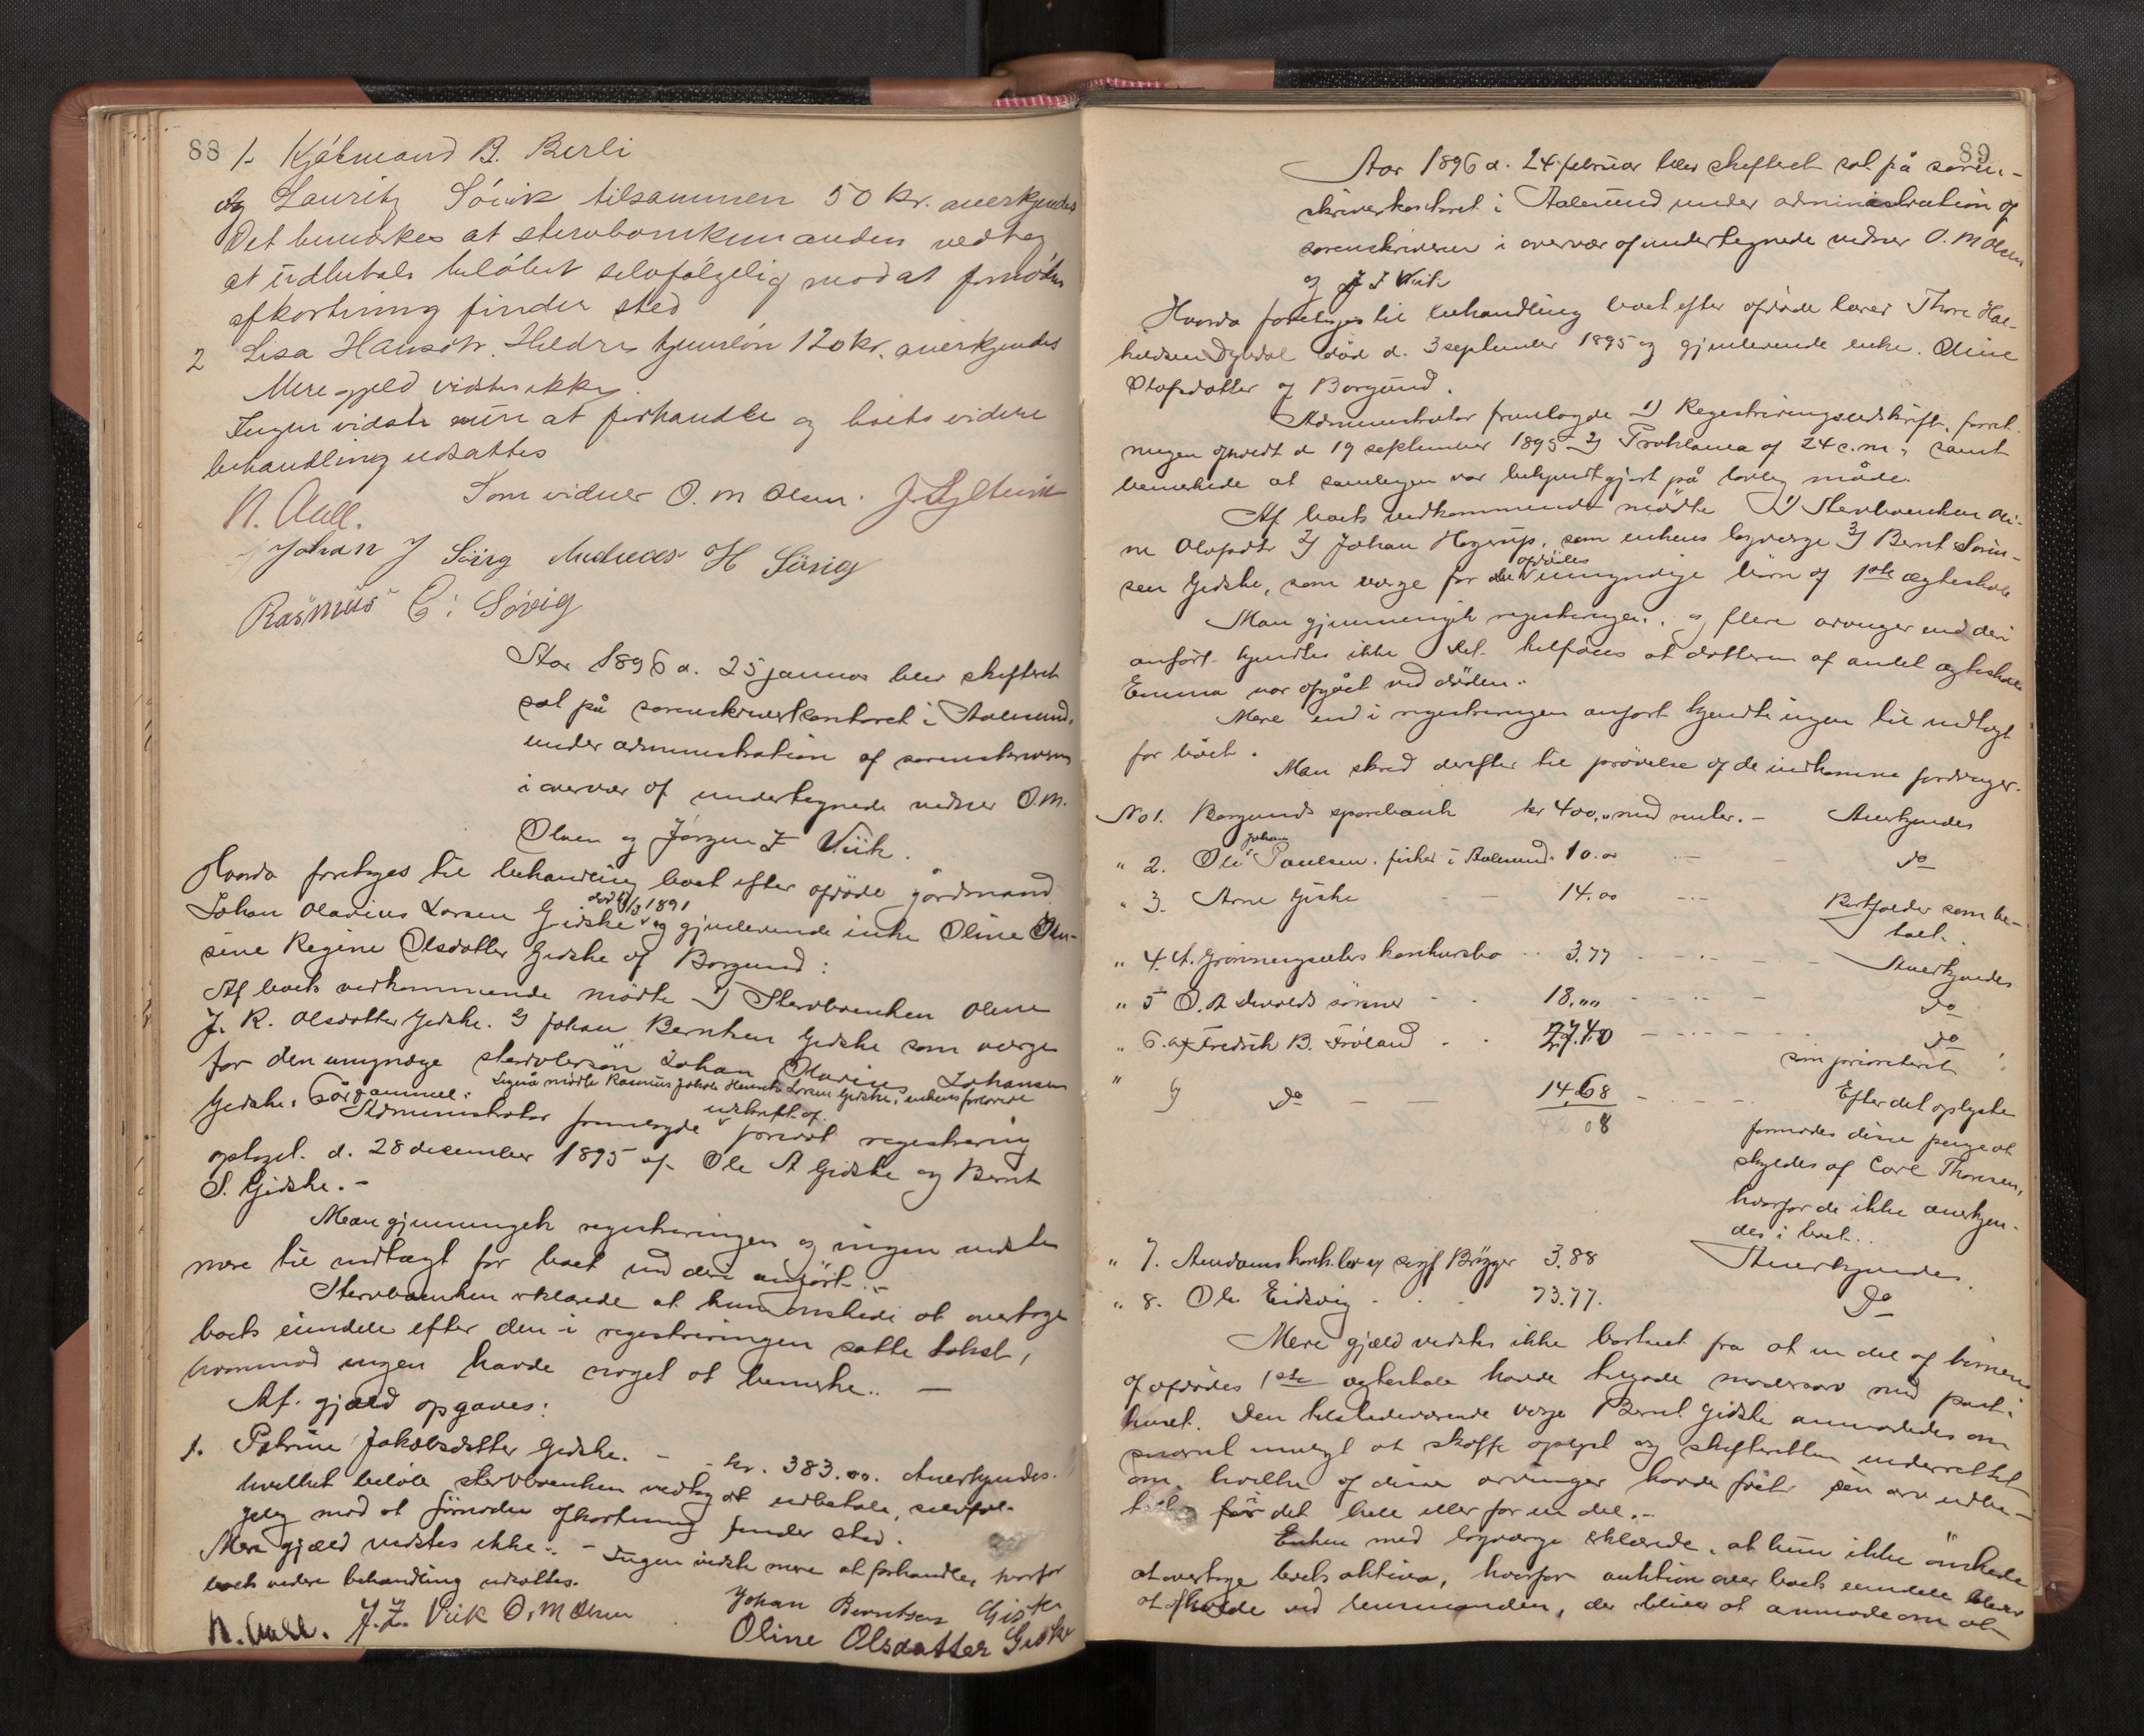 88
1. Kjøbmand B. Berli
og Lauritz Søvik tilsammen 50 kr. anerkjendes
Det bemærkes at stervboenkemanden vedtog
at udbetale beløbet selvfølgelig mod at fornøden
afkortning finder sted
2 Lisa Hansdtr. Hildre tjenerløn 120 kr. anerkjendes
Mere gjeld vidstes ikke.
Ingen vidste mere at forhandle og boets videre
behandling udsattes
N. Aall. Som vidner O. M Olsen.
Johan J Søvig Andreas H Søvig
Rasmus E: Søvig
Aar 1896 d. 25 januar blev skifteret
sat på sorenskriverkontoret i Aalesund,
under administration af sorenskriveren
i overvær af undertegnede vidner O. M.
Olsen og Jørgen Z Viik.
Hvorda foretoges til behandling boet efter afdøde gårdmand
Johan Olavius Larsen Gidske død 1891 og gjenlevende enke Oline
sine Regine Olsdatter Gidske af Borgund:
Af boets vedkommende mødte 1) Stervboenken Oline
J. R. Olsdatter Gidske. 2) Johan Berntsen Gidske som værge
for den umyndige stervboesøn Johan Olavius Johansen
Gidske, 6 år gammel. Ligeså mødte Rasmus Jakob Henrik Larsen Gidske, enkens forlovede
Administrator fremlagde udskrift af foretat registrering
optaget d. 28 december 1895 af Ole A Gidske og Bernt
S. Gidske. -
Man gjennemgik registreringen og ingen vidste
mere til indtægt for boet end deri anført. -
Stervboenken erklærede at hun ønskede at overtage
boets eiendele efter den i registreringen satte takst,
hvorimod ingen havde noget at bemerke. -
Af gjæld opgaves:
1. Petrine Jakobsdatter Gidske. - - kr. 383.00. Anerkjendes.
hvilket beløb stervboenken vedtog at udbetale, selvføl-
gelig mod at fornøden afkortning finder sted.
Mere gjæld vidstes ikke. - Ingen vidste mere at forhandle, hvorfor
boets videre behandling udsattes.
N. Aall. J. Z. Viik O. M Olsen Johan Berntsen Giske
Oline Olsdatter Giske
89
Aar 1896 d. 24 februar blev skifteret sat på soren-
skriverkontoret i Aalesund under administration af
sorenskriveren i overvær af undertegnede vidner O. M Olsen
og J Z Viik
Hvorda foretoges til behandling boet efter afdøde lærer Thore Hal-
død d. 3 september 1895 og gjenlevende enke Oline
Olafsdatter af Borgund.
Administrator fremlagde 1) Registreringsudskrift, forret-
ningen afholdt d 19 september 1895 2) Proklama af 24 c. m., samt
bemerkede at samlingen var bekjendtgjort på lovlig måde.
Af boets vedkommende mødte 1) Stervboenken Oli-
ne Olafsdtr 2) Johan Hogerup, som enkens lagværge 3) Bernt Søren-
sen Gidske, som værge for afdødes umyndige børn af 1ste ægteskab
Man gjennemgik registreringen, og flere arvinger end deri
anført kjendtes ikke. Det tilføies at datteren af andet ægteskab
Emma var afgået ved døden.
Mere end i registreringen anført kjendte ingen til indtægt
for boet.
Man skred derefter til prøvelse af de indkomne fordringer.
No 1. Borgunds sparebank kr 400,00 med renter. - Anerkjendes
" 2. Ole Johan Paulsen. fisker i Aalesund. 10.00 - do
" 3. Arne Giske - - 14.00 - Bortfalder som be-
talt.
" 4. A. Grønningsæters konkursbo 3.77 - Anerkjendes
" 5 O. A Devolds sønner - - 18.00 - do
" 6. a) Fredrik B. Frøland - - 27.40 - do
som prioriteret
" b) do - - 14.68 - Efter det oplyste
08
formodes disse penge at
skyldes af Carl Thoresen,
hvorfor de ikke anerkjen-
des i boet.
" 7. 3.88 Anerkjendes.
" 8. Ole Eidsvig - - - 73.77. do
Mere gjæld vidstes ikke bortset fra at en del af børnene
af afdødes 1ste ægteskab havde tilgode mødrearv
Den tilstedeværende værge Bernt Gidske anmodedes om
snarest muligt at skaffe opgjort og skifteretten underrettet
om hvilke af disse arvinger havde fået sin arv udbe-
talt for det hele eller for en del. -
Enken med lagværge erklærede, at hun ikke ønskede
at overtage boets aktiva, hvorfor auktion over boets eiendele blev
at afholde ved lensmanden, der bliver at anmode om at